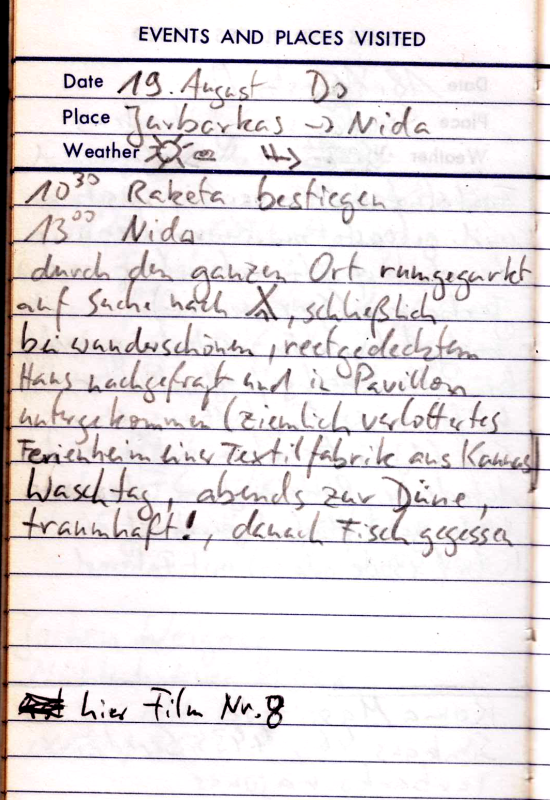 EVENTS AND PLACES VISITED
Date 19. August Do
Place Jurbarkas → Nida
Weather
10³⁰ Raketa bestiegen
13⁰⁰ Nida
durch den ganzen Ort rumgegurkt
auf Suche nach , schließlich
bei wunderschönem, reetgedecktem
Haus nachgefragt und in Pavillon
untergekommen (ziemlich verlottertes
Ferienheim einer Textilfabrik aus Kaunas)
Waschtag, abends zur Düne,
traumhaft!, danach Fisch gegessen
hier Film Nr. 8